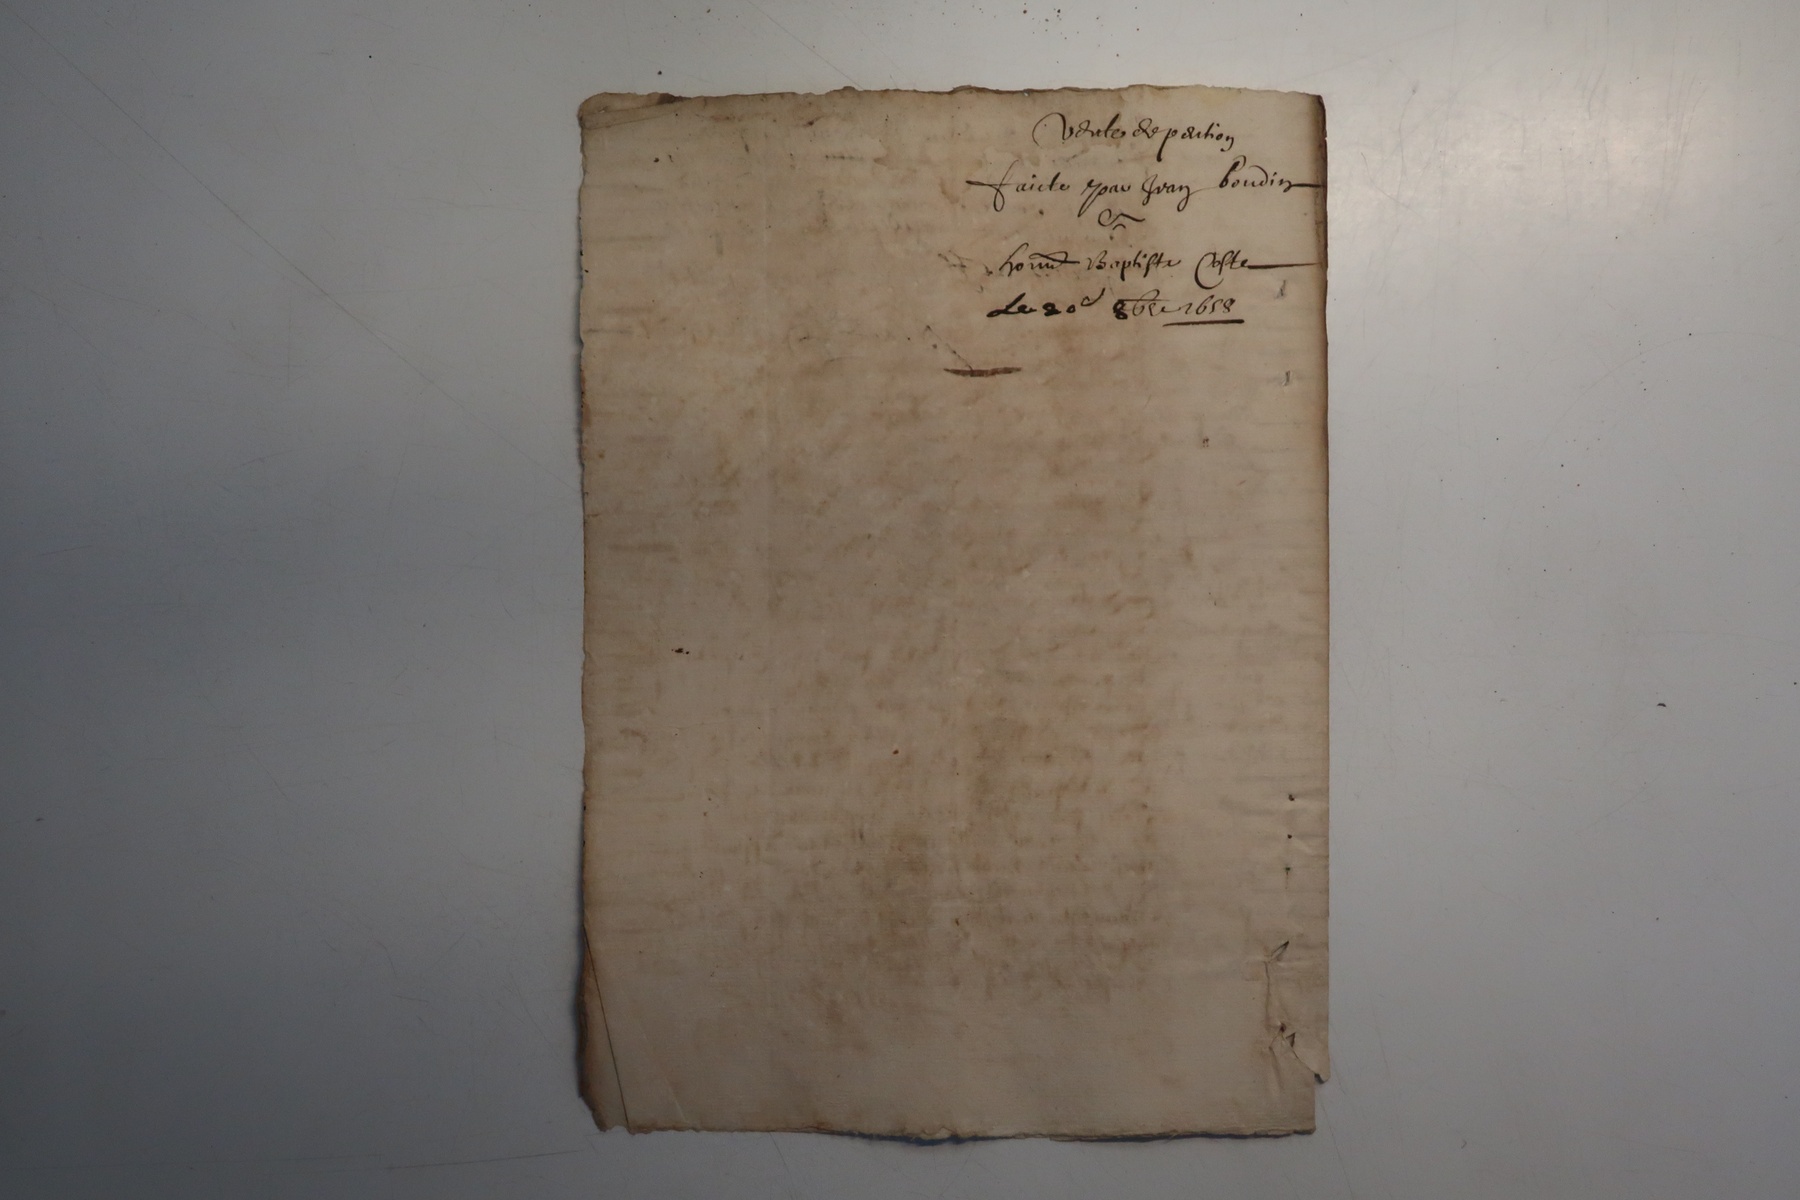 Vente de pention
faicte par Jean boudin
A
honnē Baptiste Coste
Le 20e 8bre 1658